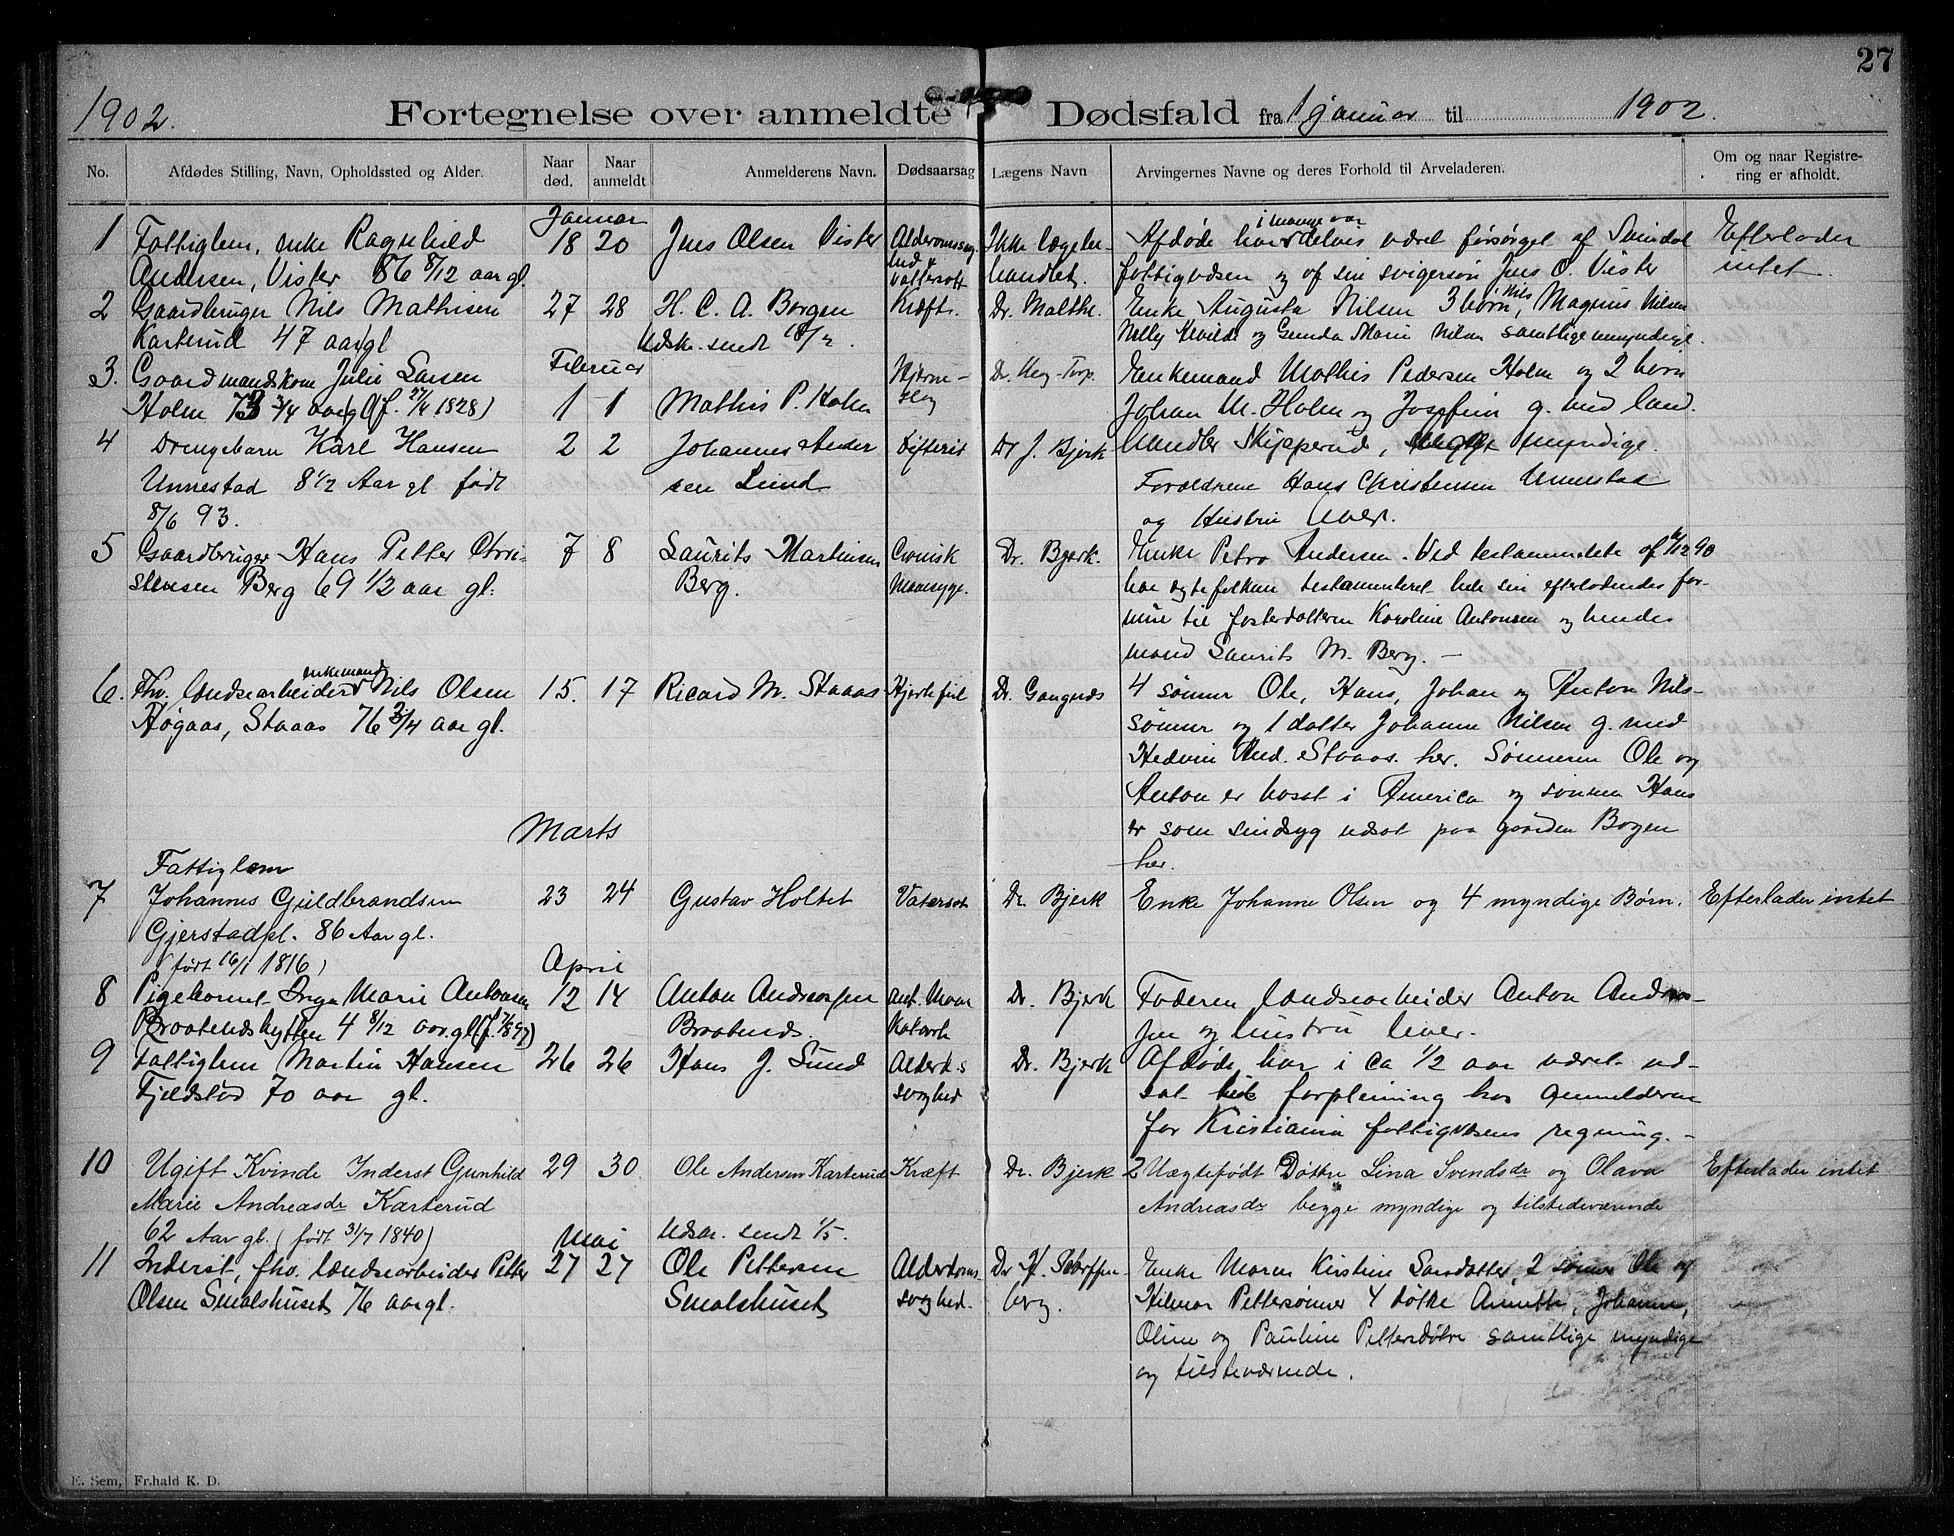 27
1902. Fortegnelse over anmeldte Dødsfald fra 1 januar til 1902.
No. Afdødes Stilling, Navn, Opholdssted og Alder. Naar død. Naar anmeldt Anmelderens Navn. Dødsaarsag Lægens Navn Arvingernes Navne og deres Forhold til Arveladeren. Om og naar Registrering er afholdt.
Januar
1 Fattiglem, enke Ragnhild 18 20 Jens Olsen Vister Alderdomssvag Ikke lægebe- Afdøde har i mange aar delvis været forsørget af Svindal Efterlader
Andersen, Vister 86 8/12 aar gl. hed & vattersott handlet. fattigvæsen og af sin svigersøn Jens O. Vister intet.
2 Gaardbruger Nils Mathisen 27 28 H. C. A. Borgen Kræft. Dr. Malthe. Enke Augusta Nilsen 3 børn, Nils Magnus Nilsen
Karterud 47 aar gl Udskr. sendt Nelly Alvilde og Gunda Marie Nilsen samtlige umyndige.
Februar
3. Gaardmandskone Julie Larsen Hjerne- Dr. Heg-Torp. Enkemand Mathis Pedersen Holm og 2 børn
Holm 73 3/4 aar gl (f. 27/4 1828) 1 1 Mathis P. Holm slag Johan M. Holm og Josefine g. med land.
4 Drengebarn Karl Hansen 2 2 Johannes Ander Difterit Dr J. Bjerk handler Skipperud, begge myndige.
Unnestad 8 1/2 Aar gl født sen Lund Forældrene Hans Christensen Unnestad
8/6 93. og Hustru lever.
5 Gaardbruger Hans Petter Chri- 7 8 Laurits Martinsen Cronisk Dr. Bjerk. Enke Petra Andersen. Ved testamentete af 6/12 90
stensen Berg 69 1/2 aar gl. Berg. Mavesyge. har ægtefolkene testamenteret hele sin efterladendes for-
mue til fosterdatteren Karoline Antonsen og hendes
mand Laurits M. Berg. -
6. Fhv. landsearbeider enkemand Nils Olsen 15. 17 Ricard M. Staaas Hjertefeil Dr. Gangnæs 4 sønner Ole, Hans, Johan og Anton Nils-
Høgaas, Staaas 76 3/4 aar gl. sønner og 1 datter Johanne Nilsen g. med
Hedvin And. Staaas. her. Sønnerne Ole og
Anton er bosat i America og sønnen Hans
er som sindsyg udsat paa gaarden Bogen
her.
Marts
Fattiglem
7 Johannes Guldbrandsen 23 24 Gustav Holtet Vatersot Dr. Bjerk Enke Johanne Olsen og 4 myndige Børn. Efterlader intet
Gjerstadpl. 86 Aar gl.
(født 16/1 1816)
April
8 Pigebarnet Inga Marie Antonsen 12 14 Anton Andreassen Aut. Mave Dr. Bjerk Faderen landsearbeider Anton Andreas-
Braatendshytten 4 8/12 aar gl (f. 7/8 97) Braatends. katarrh sen og hustru lever.
9 Fattiglem Martin Hansen 26 26 Hans J. Lund Alderd-s Dr. Bjerk Afdøde har i ca 1/2 aar været ud-
Fjeldstød 70 aar gl. svaghed sat til forpleining hos anmelderen
for Kristiania fattigvæsens regning. -
10 Ugift Kvinde Inderst Gunhild 29 30 Ole Andersen Karterud Kræft Dr. Bjerk 2 Uægtefødt Døttre Lina Svendsdr og Olava Efterlader intet
Marie Andreasdr Karterud Andreasdr begge myndige og tilstedeværende
62 Aar gl. (født 31/7 1840) Udskr. sendt 1/5.
Mai
11 Inderst, fhv. landsearbeider Petter 27 27 Ole Pettersen Alderdoms- Dr. H. Scharffen- Enke Maren Kirstine Larsdatter, 2 sønner Ole og
Olsen Smalshuset 76 aar gl. Smalshuset svaghed. berg. Hilmar Pettersønner 4 døtre Annette, Johanne,
Oline og Pauline Pettersdøtre samtlige myndige
og tilsteværende.
E. Sem, Fr.hald K. D.